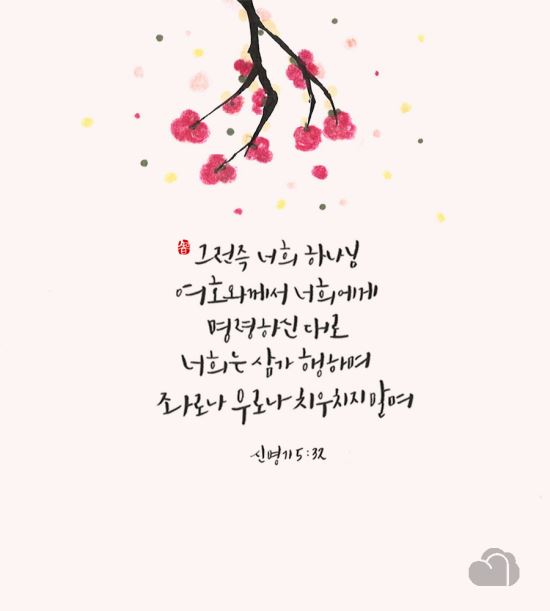 그런즉 너희 하나님
여호와께서 너희에게
명령하신 대로
너희는 삼가 행하여
좌로나 우로나 치우치지 말며
신명기 5:32